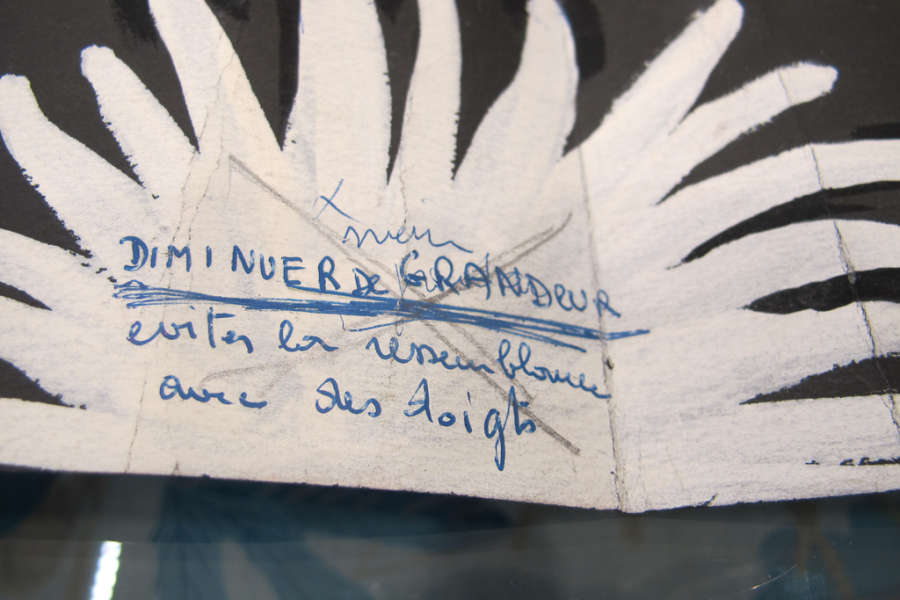 DIMINUER DE GRANDEUR
evites la ressemblance
avec des doigts